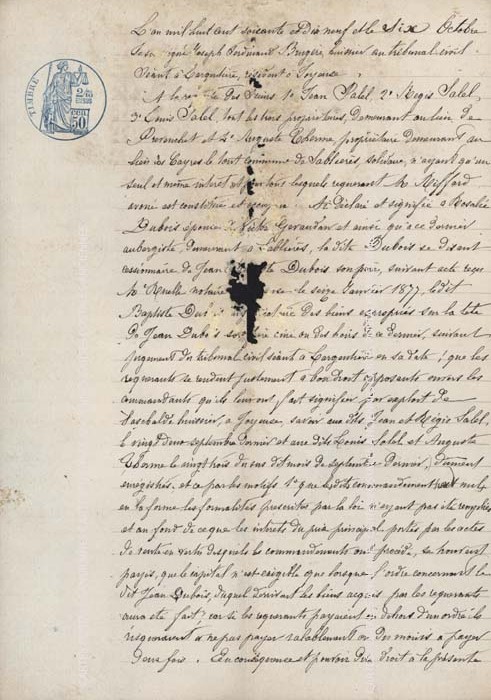 TIMBRE
50
L'an mil huit cent soixante et dix neuf et le Six Octobre
Joseph Ferdinand Brugère huissier au tribunal civil
séant à Largentière, résident à Joyeuse
A la des Sieurs 1º Jean Salel, 2º Régis Salel,
3º Louis Salel, tout les trois propriétaires, demeurant au lieu de
et 4º Auguste Therme, propriétaire demeurant au
lieu des Fayres le tout commune de Sablières, solidaires, n'ayant qu'un
seul et même intérêt et pour tous lesquels requérant Me Riffard
avoué est constitué et Ai déclaré et signifié à Rosalie
Dubois épouse de Victor Gévaudan et ainsi qu'à ce dernier
aubergiste, demeurant à Sablières, la dite Dubois se disant
cessionnaire de Jean Dubois son père, suivant acte reçu
Me Ruelle notaire le seize Janvier 1877, ledit
Baptiste Dubois des biens expropriés sur la tête
de Jean Dubois son des biens de ce dernier, suivant
jugement du tribunal civil séant à Largentière en sa date, que les
requérants se rendent justement à bon droit opposants envers les
commandants qu'ils leur ont fait signifier par exploit de
huissier, à Joyeuse, savoir aux dits Jean et Régis Salel,
le vingt deux septembre dernier et aux dits Louis Salel et Auguste
Therme le vingt trois du sus dit mois de septembre dernier, dûment
enregistrés, et ce par les motifs 1º que le dit commandement est nul
en la forme les formalités prescrites par la loi n'ayant pas été remplies
et au fond de ce que les intérêts du prix principal portés par les actes
de vente en vertu desquels les commandements ont précédé, se trouvent
payés, que le capital n'est exigible que lorsque l'ordre concernant le
dit Jean Dubois, duquel dérivent les biens acquis par les requérants
aura été fait, car si les requérants payaient en dehors d'un ordre ils
risqueraient à ne pas payer valablement ou du moins à payer
deux fois. En conséquence et pour voir dire droit à la présente